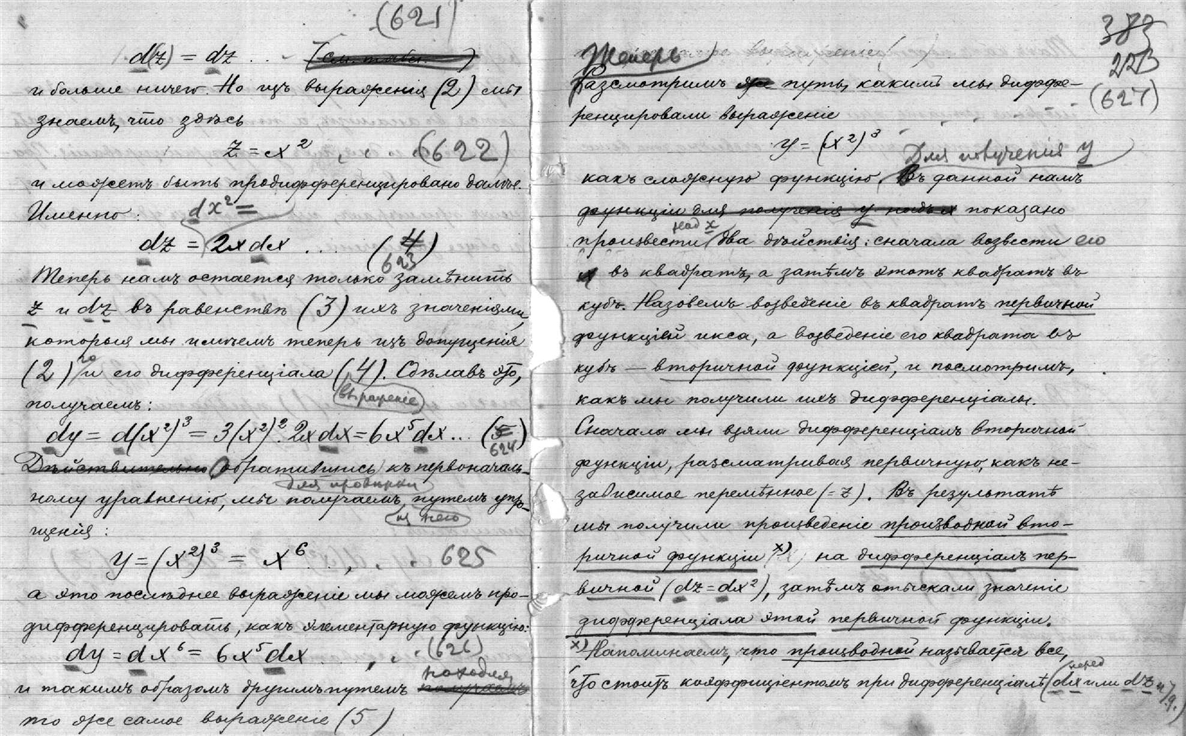 (621)
d(z) = dz ...
и больше ничего. Но изъ выраженія (2) мы
знаемъ, что здѣсь
z = x² . . (622)
и можетъ быть продифференцировано дальше.
Именно: dx² =
dz = 2xdx ... (4)
623
Теперь намъ остается только замѣнить
z и dz въ равенствѣ (3) ихъ значеніями,
которыя мы имѣемъ теперь изъ допущенія
(2)го и его дифференціала (4). Сдѣлавъ это,
получаемъ: выраженіе
dy = d(x²)³ = 3(x²)². 2xdx = 6x⁵dx ... (5)
624
Дѣйствительно Обратившись къ первоначаль-
для провѣрки
ному уравненію, мы получаемъ путемъ упро-
изъ него
щенія:
y = (x²)³ = x⁶ , . . 625
а это послѣднее выраженіе мы можемъ про-
дифференцировать, какъ элементарную функцію:
dy = dx⁶ = 6x⁵dx , . . (626)
находя
и такимъ образомъ другимъ путемъ получаемъ
то же самое выраженіе (5)
383
223
(627)
Теперь
Разсмотримъ путь, какимъ мы диффе-
ренцировали выраженіе
y = (x²)³
Для полученія y
какъ сложную функцію. Въ данной намъ
функціи для полученія y надъ x показано
надъ x
произвести два дѣйствія: сначала возвести его
въ квадратъ, а затѣмъ этотъ квадратъ въ
кубъ. Назовемъ возведеніе въ квадратъ первичной
функціей икса, а возведеніе его квадрата въ
кубъ — вторичной функціей, и посмотримъ,
какъ мы получили ихъ дифференціалы.
Сначала мы взяли дифференціалъ вторичной
функціи, разсматривая первичную, какъ не-
зависимое перемѣнное (= z). Въ результатѣ
мы получили произведеніе производной вто-
ричной функціи x) на дифференціалъ пер-
вичной (dz = dx²), затѣмъ отыскали значеніе
дифференціала этой первичной функціи.
x) Напоминаемъ, что производной называется все,
передъ
что стоитъ коэффиціентомъ при дифференціалѣ (dx или dz и т.д.)